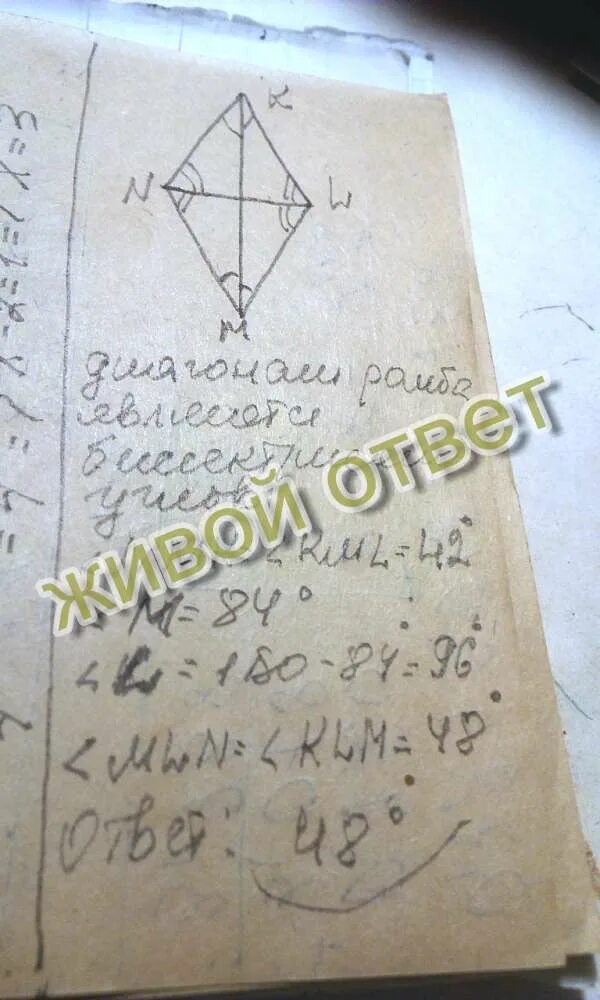 K
N
L
M
диагонали ромба
являются
биссектрисами
углов
< KML = 42°
M = 84°
< L = 180 - 84° = 96°
< MLN = < KLM = 48°
Ответ: 48°
ЖИВОЙ ОТВЕТ